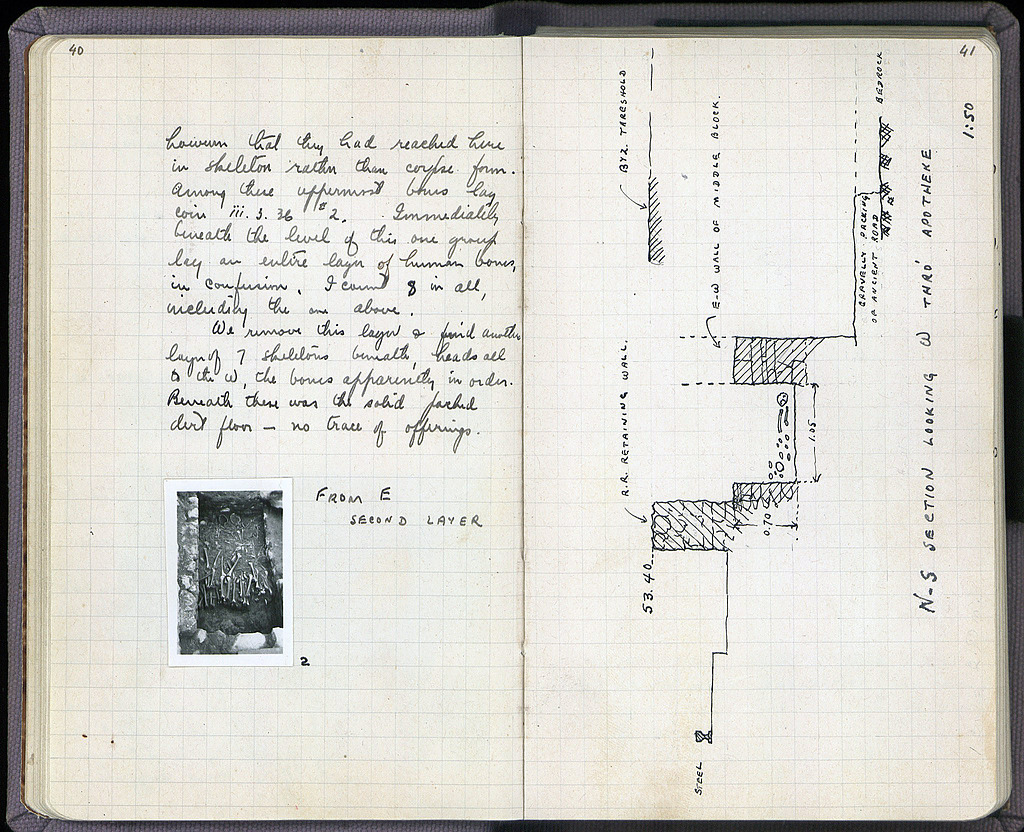 40
however that they had reached here
in skeleton rather than corpse form.
Among these uppermost bones lay
coin iii. 3. 36 #2. Immediately
beneath the level of this one group
lay an entire layer of human bones,
in confusion. I count 8 in all,
including the one above.
We remove this layer & find another
layer of 7 skeletons beneath, heads all
to the W, the bones apparently in order.
Beneath these was the solid packed
dirt floor — no trace of offerings.
FROM E
SECOND LAYER
2
41
1:50
BYZ. THRESHOLD
E-W WALL OF MIDDLE BLOCK.
BEDROCK
GRAVELLY PACKING
OF ANCIENT ROAD
R.R. RETAINING WALL.
1.05
0.70
53.40
STEEL
N-S SECTION LOOKING W THRO' APOTHEKE